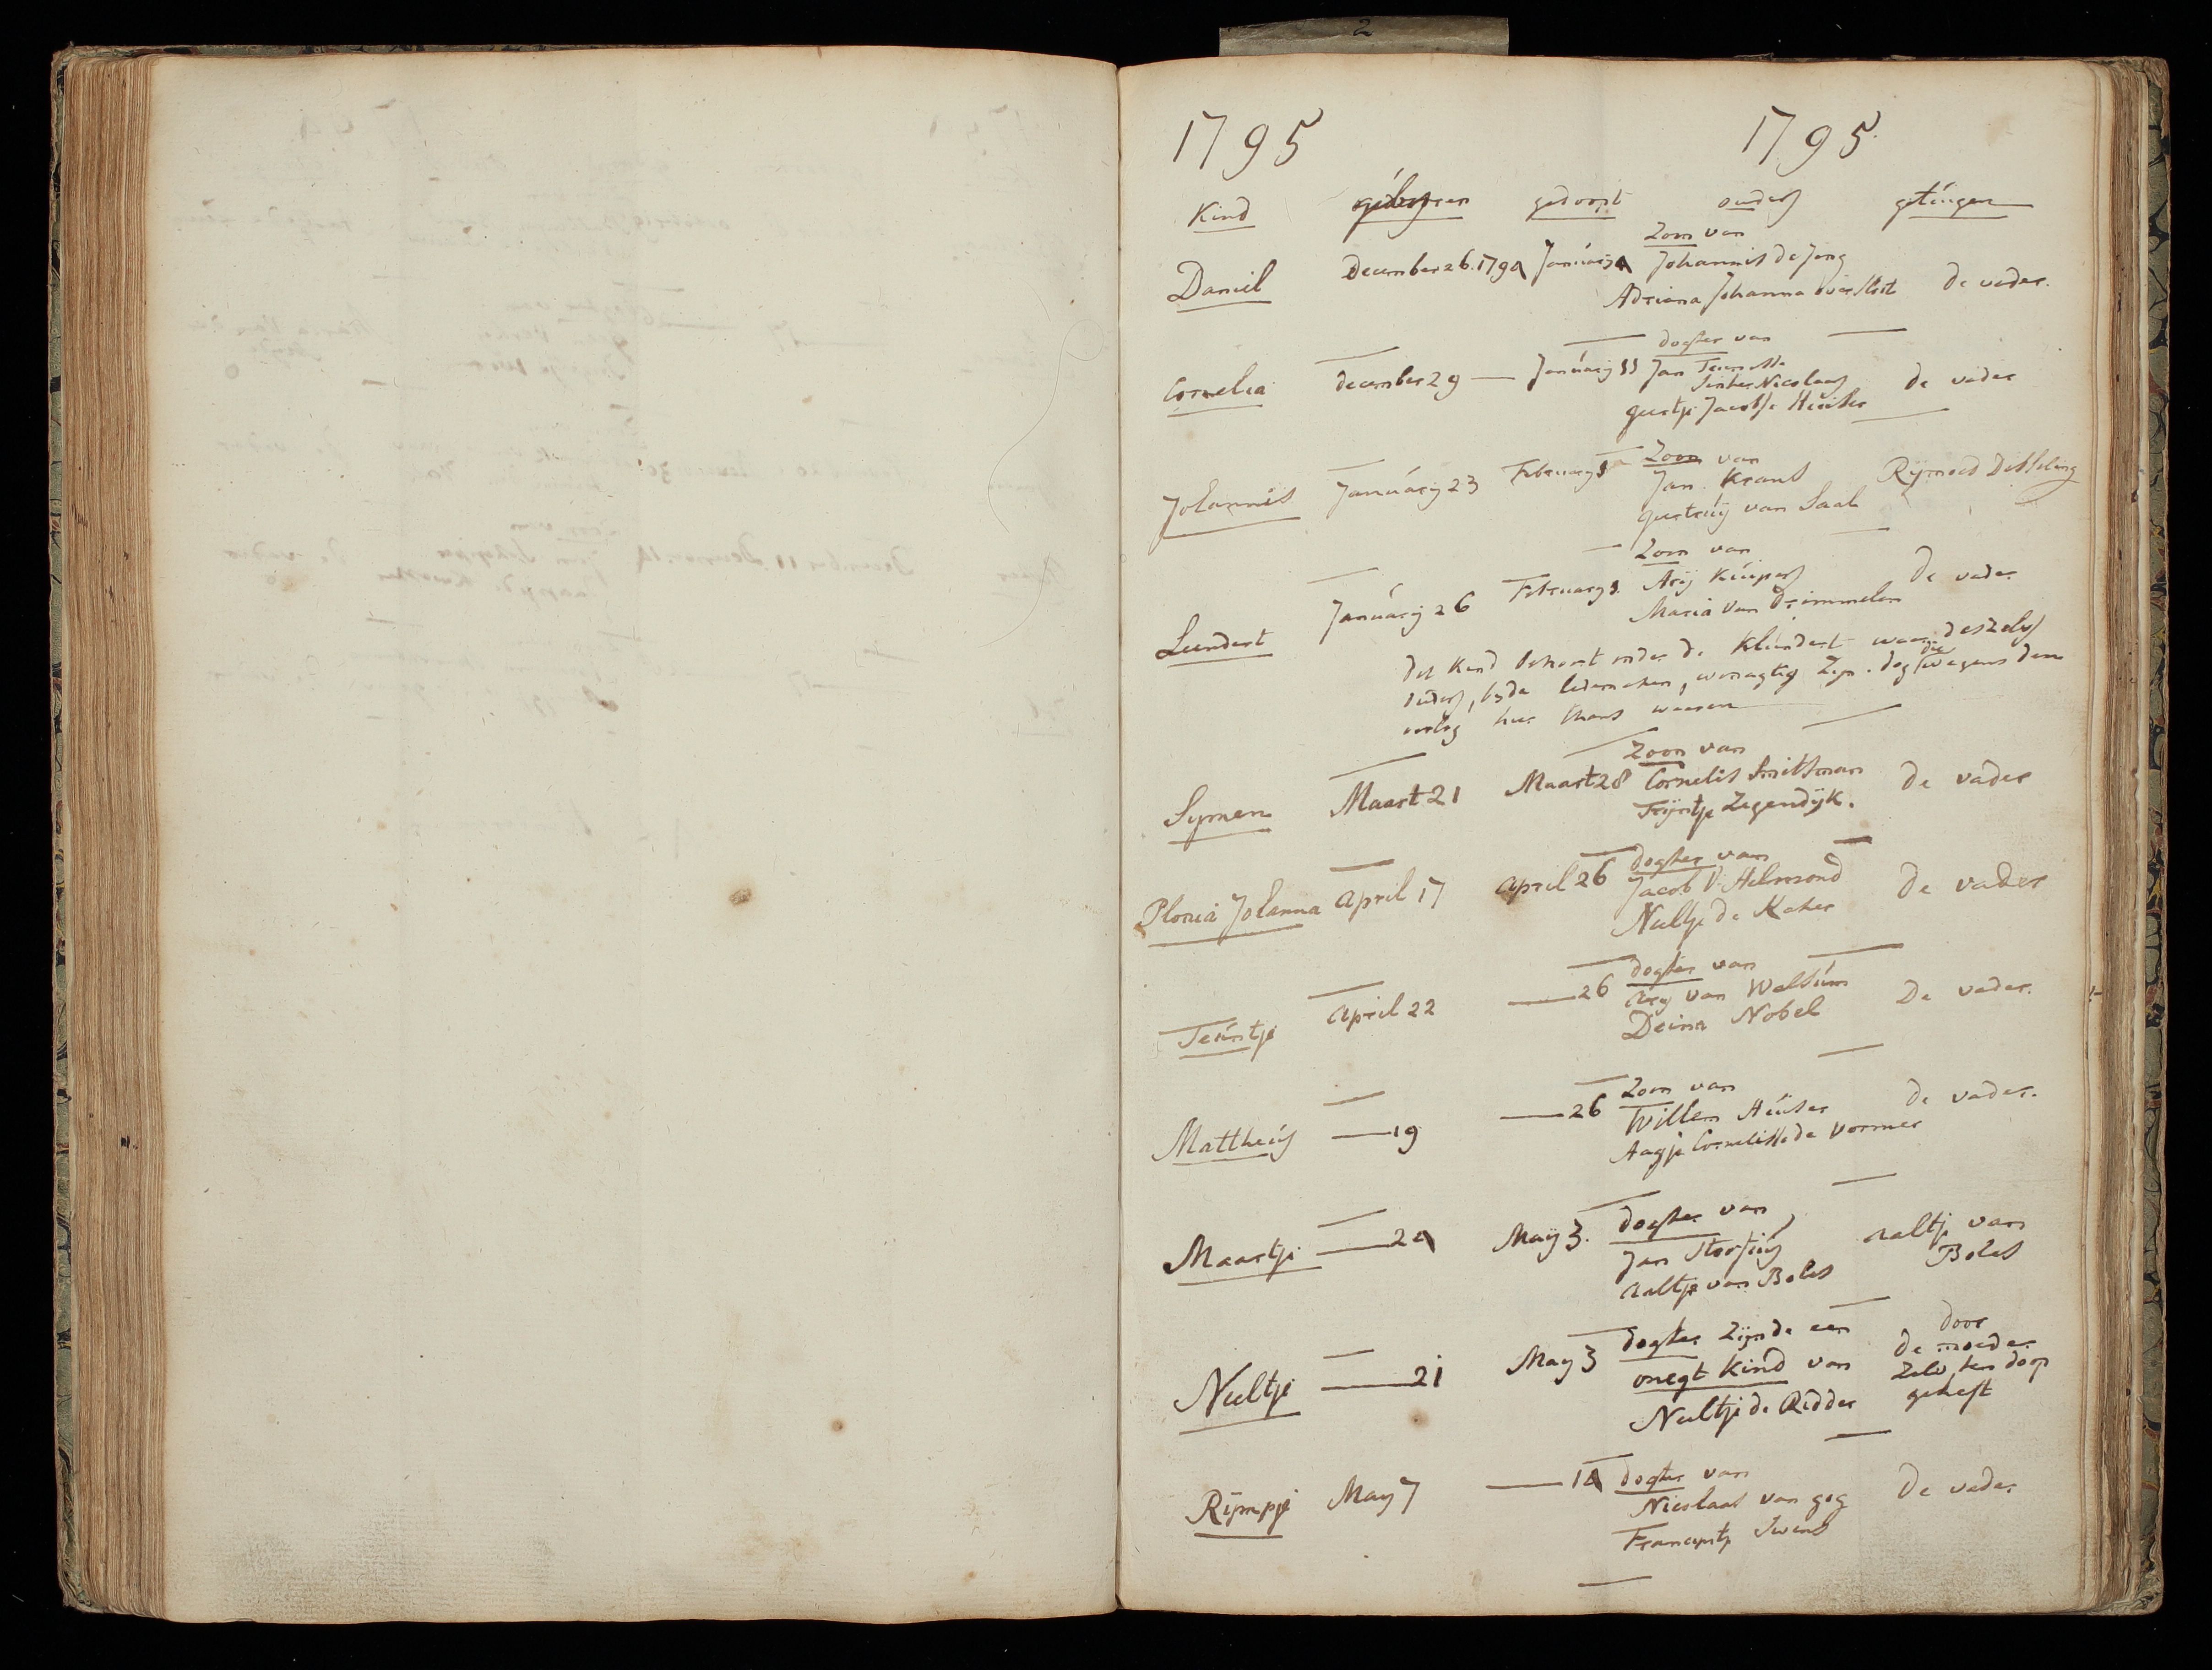 2
1795 1795.
Kind geboren gedoopt ouders getuigen
Zoon van
Daniel December 26. 1794 January 4 Johannis de Jong
Adriana Johanna overslost de vader.
dogter van
Cornelia december 29 — January 11 Jan Teunisse
Sinter Nicolaas de vader
geertje Jacobse
Zoon van
Johannis January 23 February 1 Jan Krans Rijmoed Desseling
geertruij van Saal
Zoon van
Leendert January 26 February 1. Arij Kuipers de vader
Maria van Drimmelen
dit kind behoort onder de Klundert waar deszelfs
ouders, bij de ledematen, wonagtig Zijn. dog die wegens den
oorlog hier thans waaren
Zoon van
Symen Maart 21 Maart 28 Cornelis Smitsman de vader
Fijntje Zegendijk.
dogter van
Plonia Johanna april 17 april 26 Jacob V. Helmond de vader
Neeltje de Kater
dogter van
Teuntje april 22 — 26 Arij van Walsum de vader.
Deina Nobel
Zoon van
Mattheus — 19 — 26 Willem Huiser de vader.
Aagje Cornelisse de Vormer
dogter van
Maartje — 24 May 3. Jan aaltje van
aaltje van Boles Boles
dogter Zijnde een door
Neeltje — 21 May 3 onegt kind van de moeder
Neeltje de Ridder Zelv ten doop
geheft
dogter van
Rijmpje May 7 — 14 Nicolaas van gog de vader
Swens